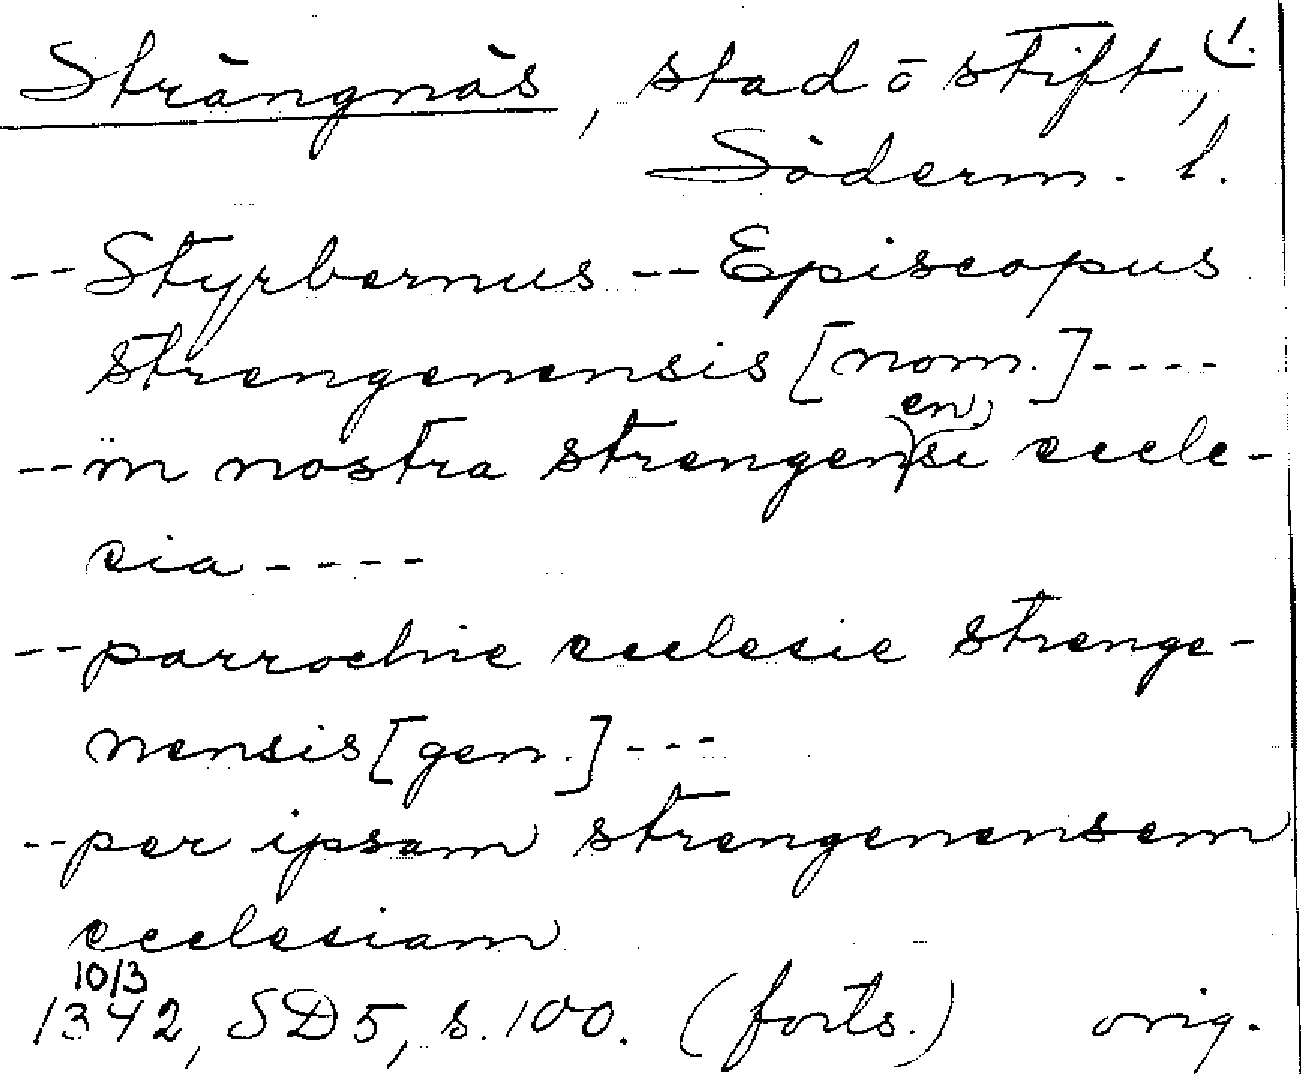 Strängnäs, stad o stift, 1.
Söderm. l.
-- Styrbernus -- Episcopus
strengenensis [nom.] ----
-- in nostra strengensi ecele-
en
cia ----
-- parrochie ecelecie strenge-
nensis [gen.] ---
-- per ipsam strengenensem
ecelesiam
10/3
1342, SD 5, s. 100. (forts.) orig.